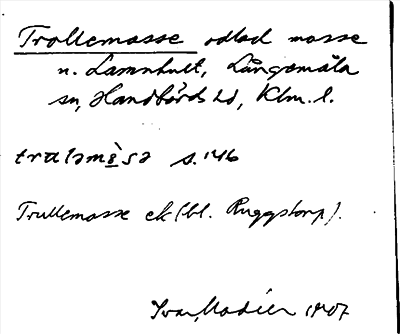 Trollemosse odlad mosse
n. Lamnhult, Långemåla
sn, Handbörds hd, Klm. l.
tralam s. 146
Trullemosse ek (bl. Ruggstorp).
Ivar Modéer 1907